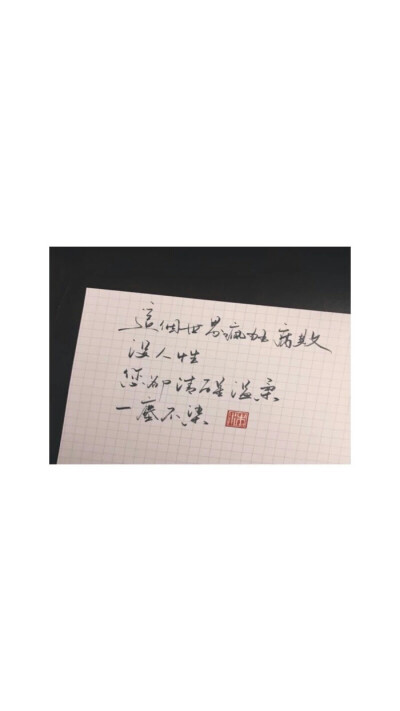 這個世界瘋狂 腐敗
没人性
您卻清醒溫柔
一塵不染